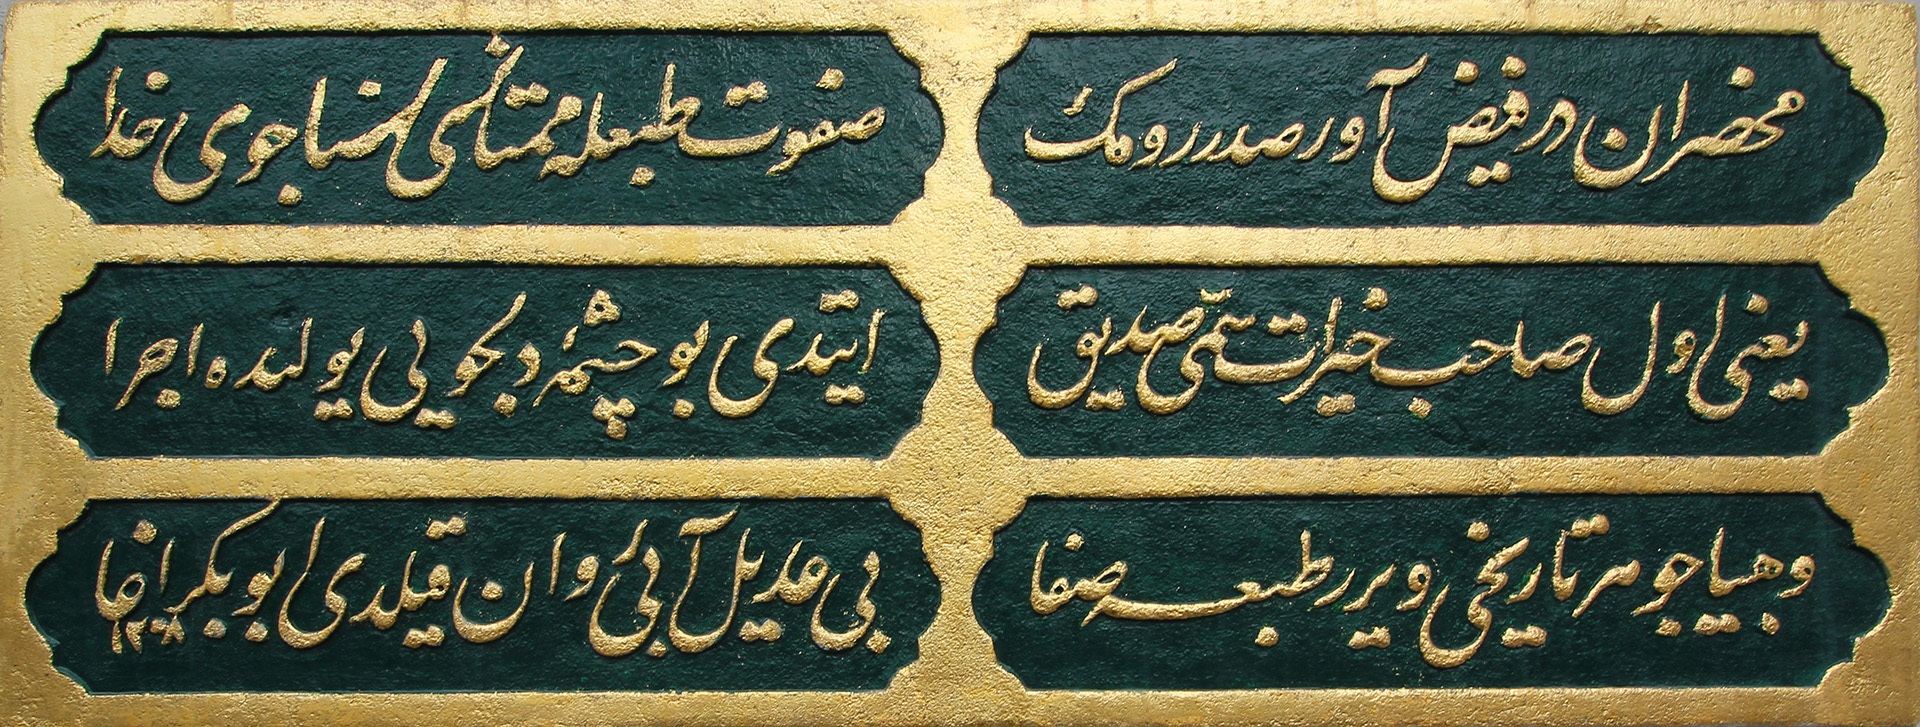 محضران در فیض آور صدر رومك
صفوت طبعله ممتاسی سناجوی خدا
یعنی اول صاحب خیرات سمی صدیق
ایتدی بو چشمهٔ دلجویی یولنده اجرا
وهبیا جوهر تاریخی ویرر طبعه صفا
بی عدیل آبی روان قیلدی ابو بکر اغا
۱۲۰۸